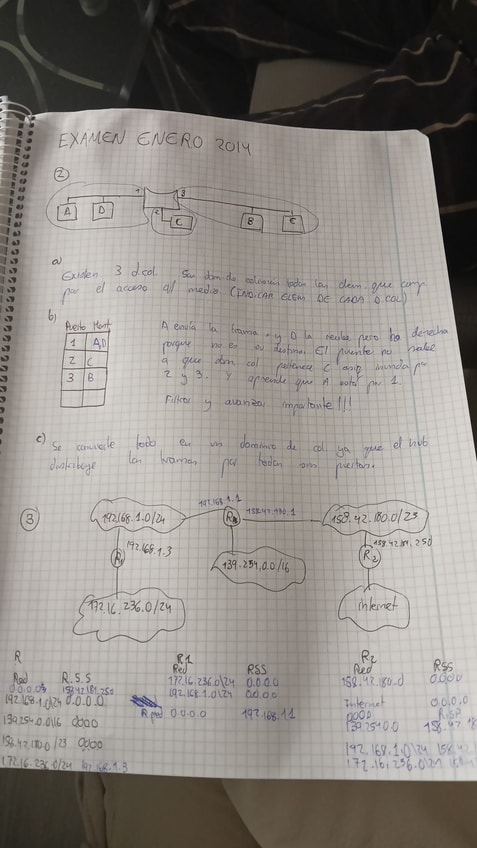 EXAMEN ENERO 2014
2
1 3
A D 2 C B E
a)
Existen 3 d.col. Son dom de colisión todos los elem. que
por el acceso al medio (INDICAR ELEM DE CADA D.COL)
b)
Puerto Host
1 A,D
2 C
3 B
A envía la trama y D la recibe pero ha
porque no es su destino. El puente no sabe
a que dom. col pertenece C así inunda por
2 y 3. Y aprende que A está por 1.
Filtrar y avanzar importante!!!
c)
Se convierte todo en un dominio de col. ya que el hub
las tramas por todos sus puertos.
3
192.168.1.0/24 192.168.1.1 R 158.42.180.1 158.42.180.0/23
R1 192.168.1.3 139.254.0.0/16 R2 158.42.181.250
172.16.236.0/24 internet
R
Red R.S.S
0.0.0.0 158.42.181.250
192.168.1.0/24 0.0.0.0
139.254.0.0/16 0.0.0.0
158.42.180.0/23 0.0.0.0
172.16.236.0/24 192.168.1.3
R1
Red RSS
172.16.236.0/24 0.0.0.0
192.168.1.0/24 0.0.0.0
0.0.0.0 192.168.1.1
R2
Red RSS
158.42.180.0 0.0.0.0
Internet 0.0.0.0
0.0.0.0 R.ISP
139.254.0.0 158.42.18
192.168.1.0/24 158.42
172.16.236.0/24